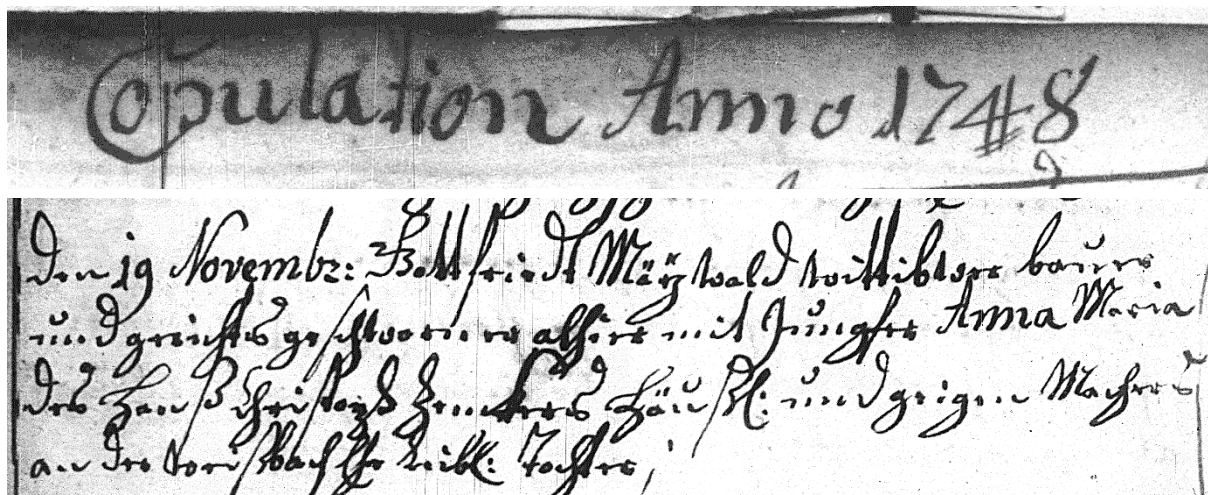 Copulation Anno 1748
den 19 Novembr: Gottfriedt Märzwald wittibwer bauer
und gerichts geschworner alhier mit Jungfer Anna Maria
des Hanß Christoph Henckers Häußl: und geigen Machers
an der Weisbach Ehe leibl: Tochter